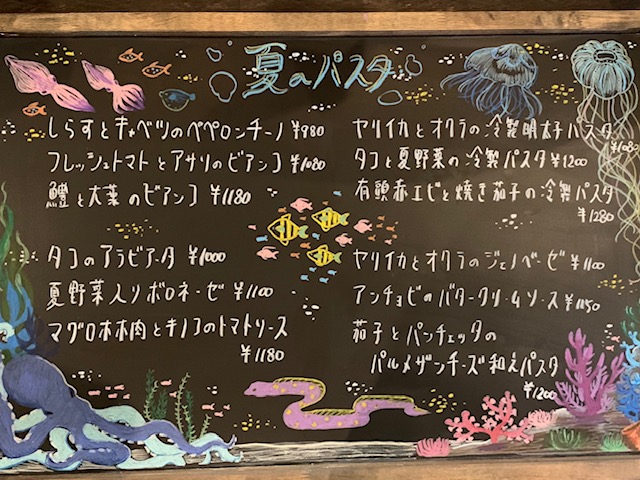 夏のパスタ
しらすとキャベツのペペロンチーノ ¥980
フレッシュトマトとアサリのビアンコ ¥1080
鱧と大葉のビアンコ ¥1180
タコのアラビアータ ¥1000
夏野菜入りボロネーゼ ¥1100
マグロホホ肉とキノコのトマトソース
¥1180
ヤリイカとオクラの冷製明太子パスタ
¥1080
タコと夏野菜の冷製パスタ ¥1200
有頭赤エビと焼き茄子の冷製パスタ
¥1280
ヤリイカとオクラのジェノベーゼ ¥1100
アンチョビのバタークリームソース ¥1150
茄子とパンチェッタの
パルメザンチーズ和えパスタ
¥1200